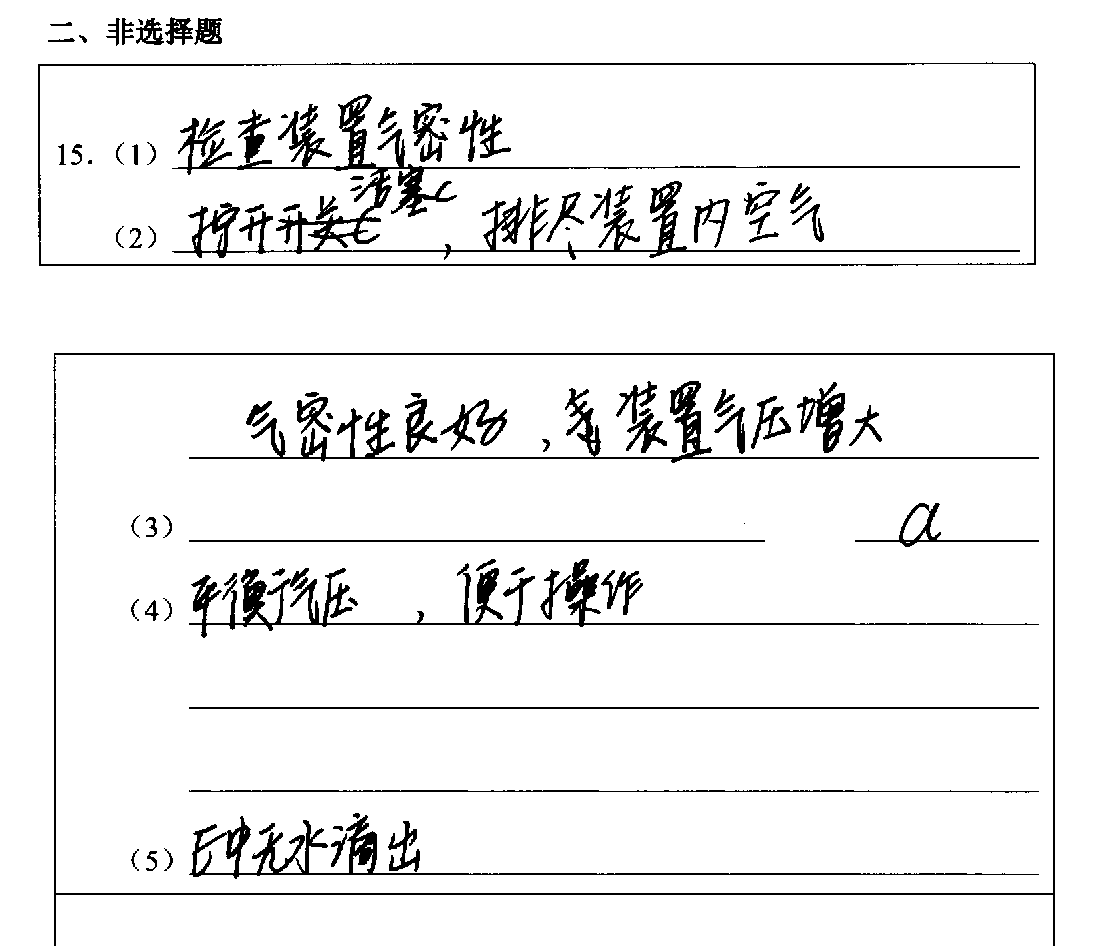 二、非选择题
15.（1）检查装置气密性
活塞C
（2）拧开开关C，排尽装置内空气
气密性良好，装置气压增大
（3） a
（4）平衡气压，便于操作
（5）E中无水滴出